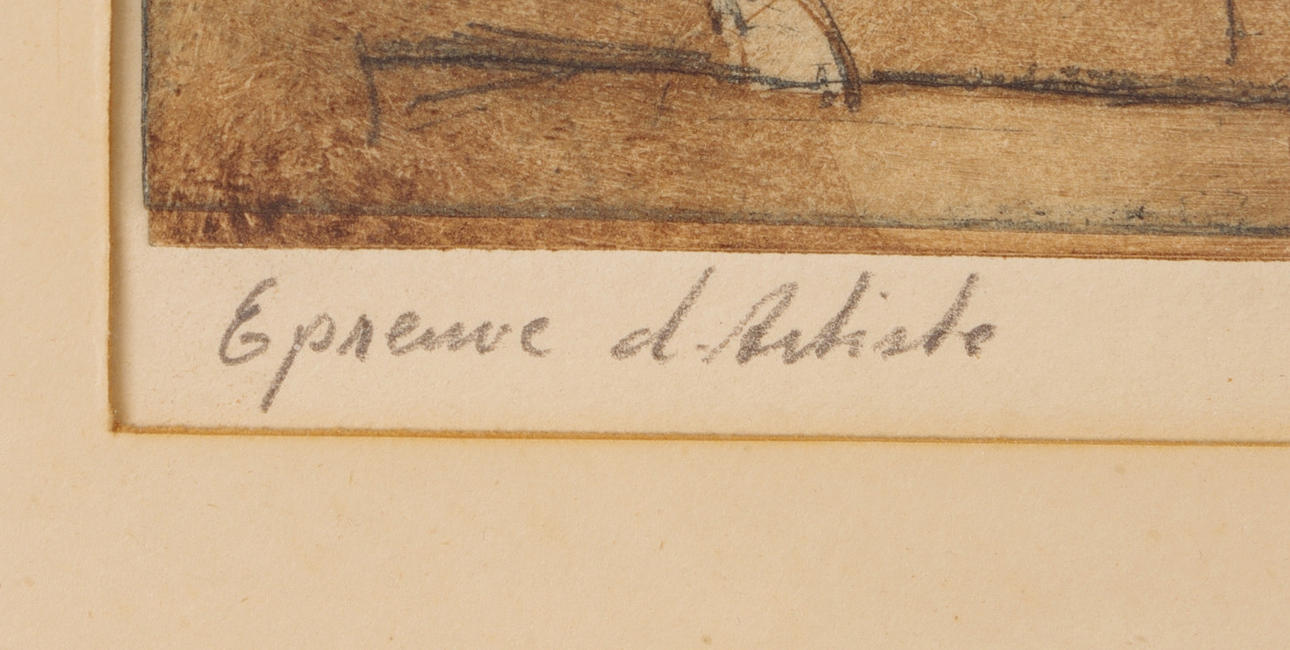 Epreuve d'Artiste